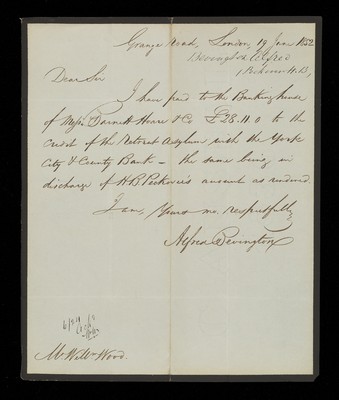 Grange Road, London, 19 June 1852
Bevington Alfred
Dear Sir
I have paid to the Banking house
of Messrs Barnett Hoare & Co £28.11.0 to the
Credit of the Retreat Asylum with the York
City & County Bank – the same being in
discharge of H.B. account as rendered.
I am, Yours respectfully
Alfred Bevington
Mr Willm Wood.